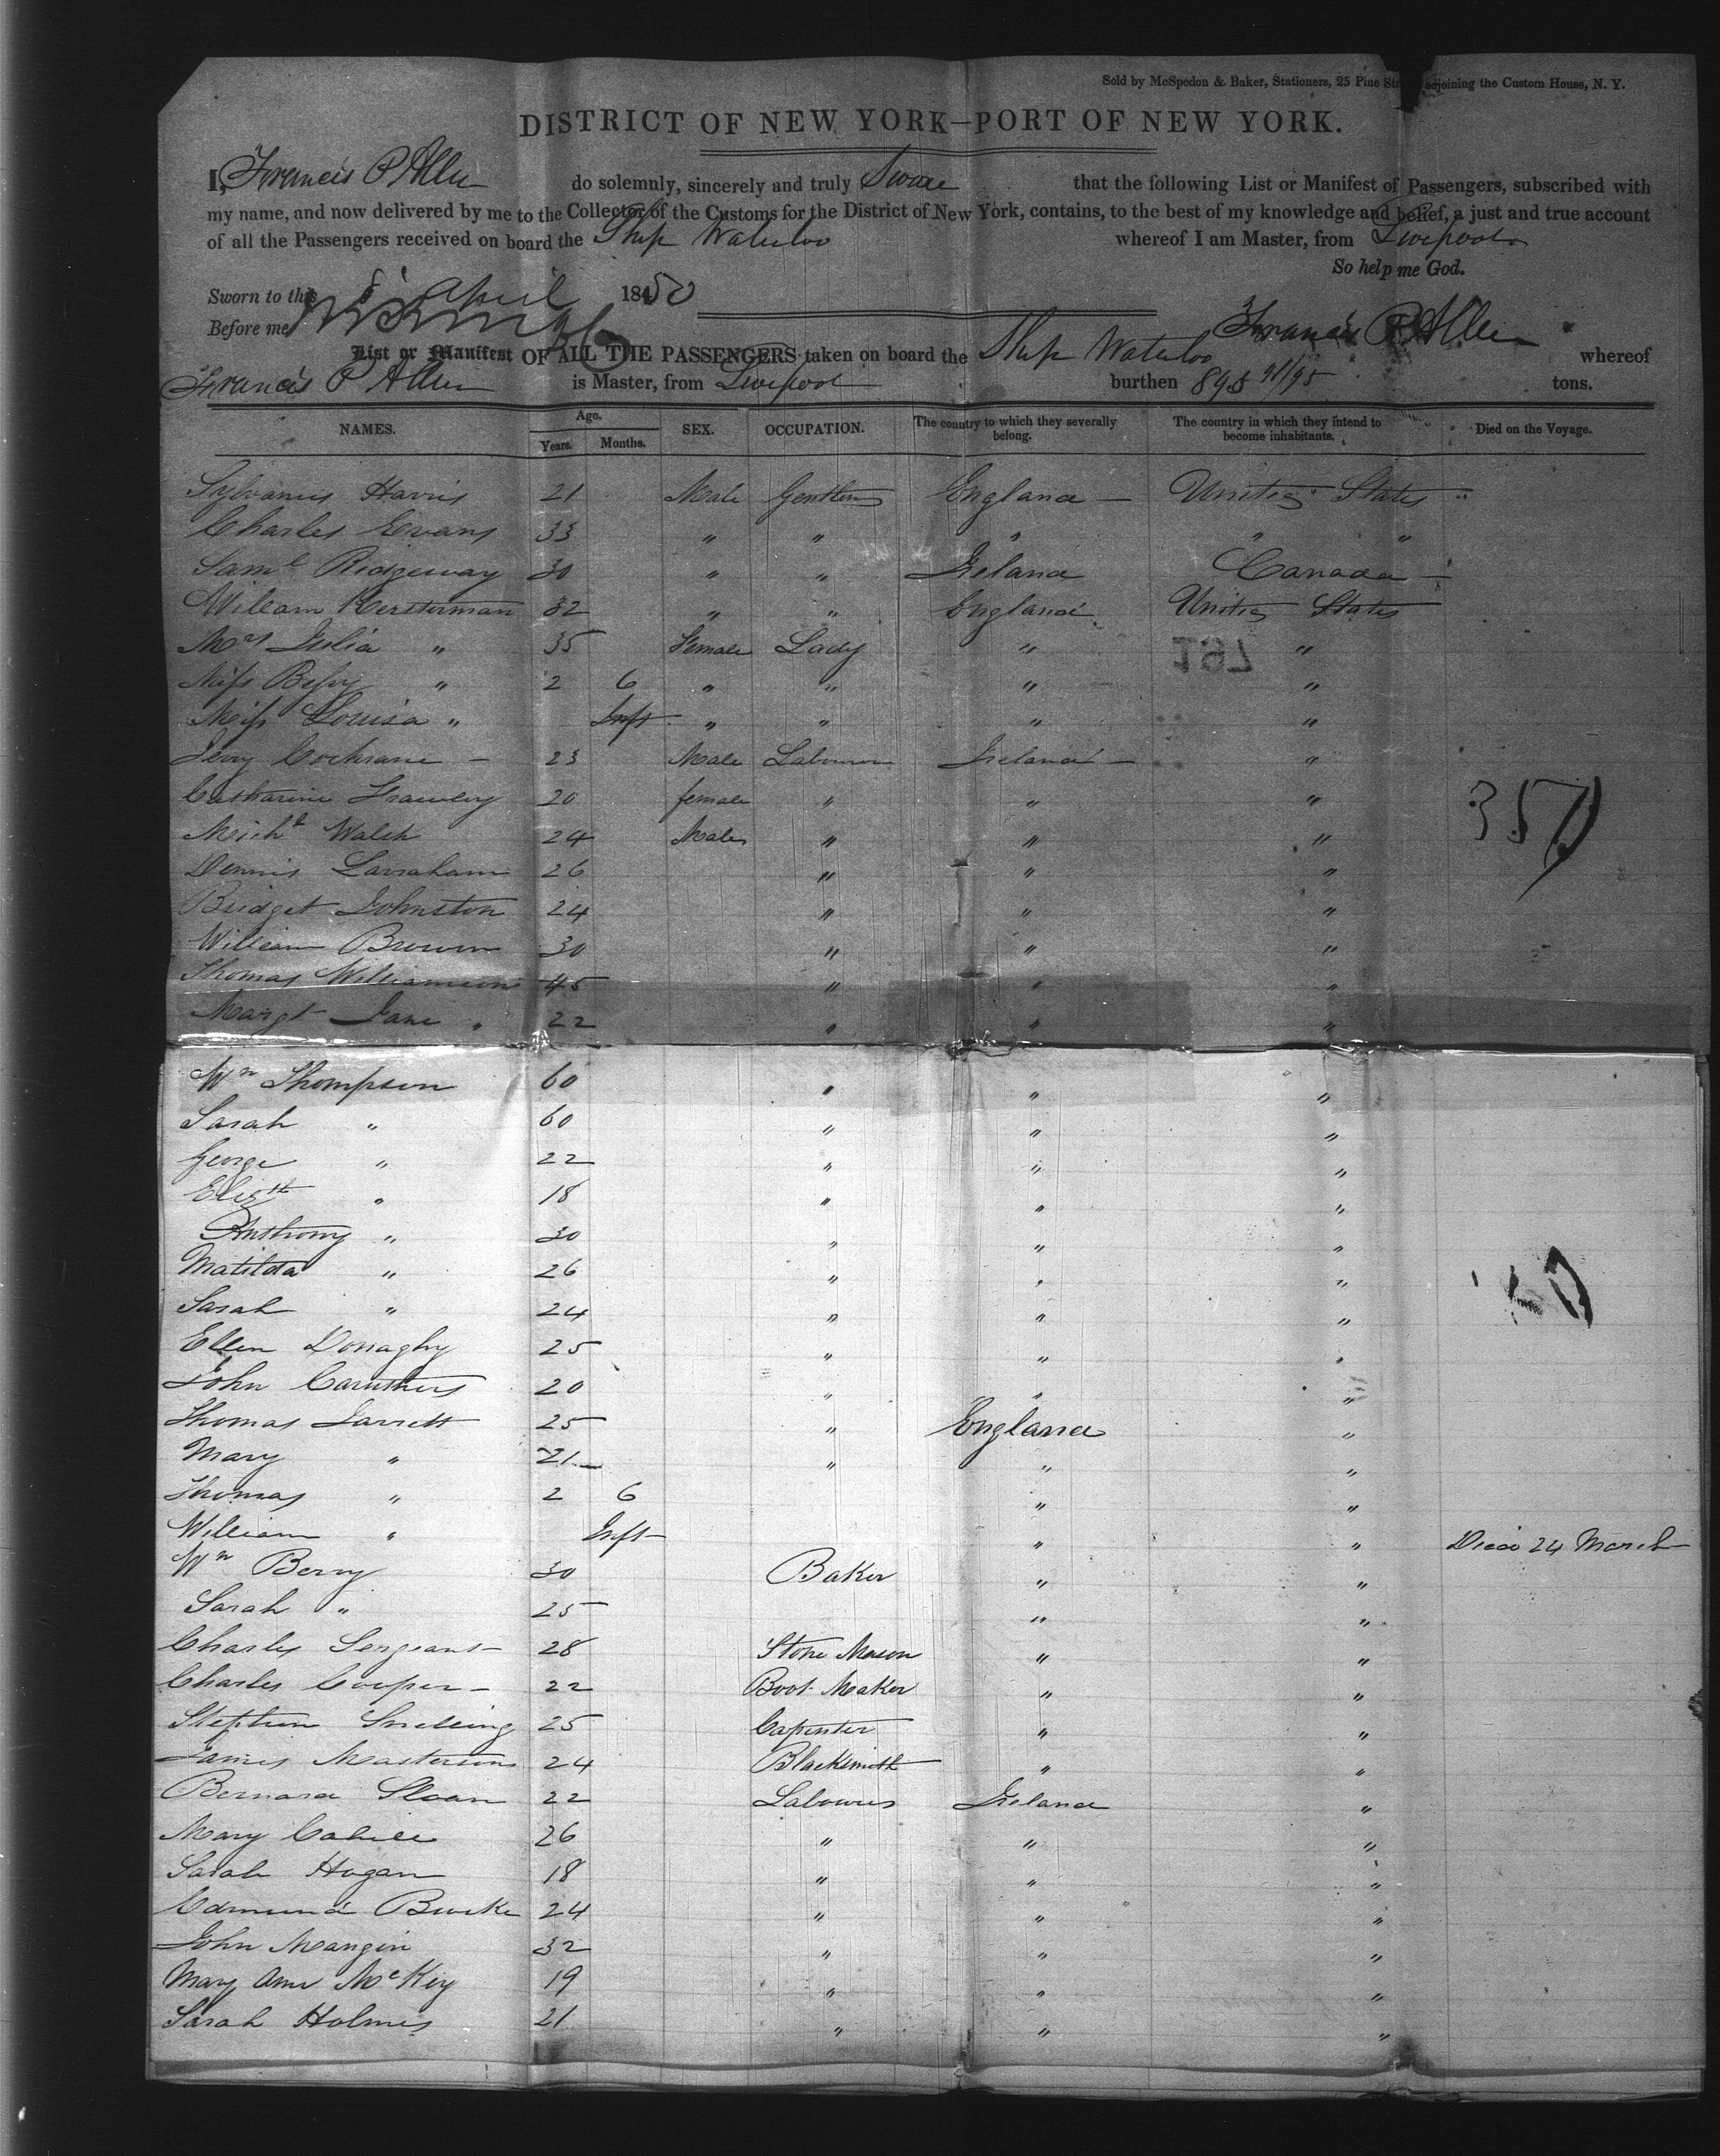 Sold by McSpedon & Baker, Stationers, 25 Pine Str adjoining the Custom House, N. Y.
DISTRICT OF NEW YORK—PORT OF NEW YORK.
I, Francis P Allen do solemnly, sincerely and truly Swear that the following List or Manifest of Passengers, subscribed with
my name, and now delivered by me to the Collector of the Customs for the District of New York, contains, to the best of my knowledge and belief, a just and true account
of all the Passengers received on board the Ship Waterloo whereof I am Master, from Liverpool
So help me God.
Sworn to this 8 April 1850
Before me Francis P Allen
List or Manifest OF ALL THE PASSENGERS taken on board the Ship Waterloo whereof
Francis P Allen is Master, from Liverpool burthen 898 91/95 tons.
NAMES. Age. Years. Months. SEX. OCCUPATION. The country to which they severally belong. The country in which they intend to become inhabitants. Died on the Voyage.
Sylvanus Harris 21 Male Gentlem England — United States "
Charles Evans 33 " " " " "
Saml Ridgeway 30 " " Ireland Canada —
William Kersterman 32 " " England United States
Mrs Julia " 35 Female Lady " "
Miss Bessy " 2 6 " " " "
Miss Louisa " Inft " " " "
Jerry Cochrane — 23 Male Labourer Ireland — "
Catharine Frawley 20 female " " "
Michl Walsh 24 Male " " "
Dennis Lanahan 26 " " "
Bridget Johnston 24 " " "
William Brown 30 " " "
Thomas Williamson 45 " " "
Margt Jane " 22 " " "
Wm Thompson 60 " " "
Sarah " 60 " " "
George " 22 " " "
Elizth " 18 " " "
Anthony " 30 " " "
Matilda " 26 " " "
Sarah " 24 " " "
Ellen Donaghy 25 " " "
John Caruthers 20 " " "
Thomas Jarrett 25 " England "
Mary " 21 " " "
Thomas " 2 6 " "
William " Inft " " Died 24 March
Wm Berry 30 Baker " "
Sarah " 25 " "
Charles Sergeant 28 Stone Mason " "
Charles Cooper — 22 Boot Maker " "
Stephen Snelling 25 Capenter " "
James Masterson 24 Blacksmith " "
Bernard Sloan 22 Labourer Ireland "
Mary Cahill 26 " " "
Sarah Hogan 18 " " "
Edmund Burke 24 " " "
John Mangin 32 " " "
Mary Ann McKey 19 " " "
Sarah Holmes 21 " " "
357